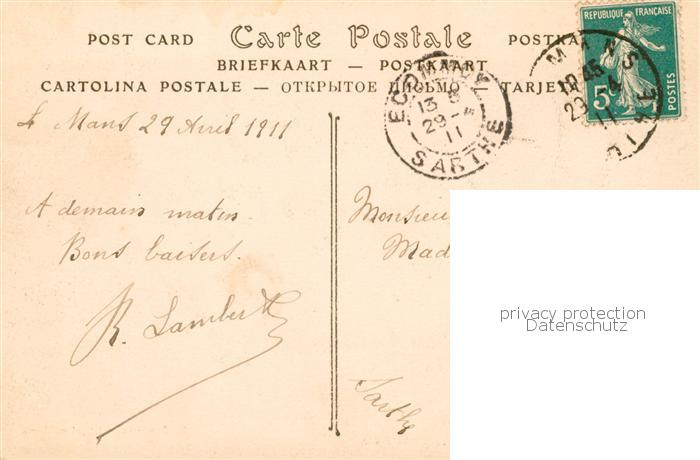 POST CARD Carte Postale POSTKA
BRIEFKAART — POSTKAART
CARTOLINA POSTALE — ОТКРЫТОЕ ПИСЬМО — TARJE
RÉPUBLIQUE FRANÇAISE
5c
POSTES
MANS
10 45
29 4
11
ECOMMOY
13
29
11
SARTHE
Le Mans 29 Avril 1911
A demain matin.
Bons baisers.
R. Lambert
Monsieur
Mad
Sarthe
privacy protection
Datenschutz